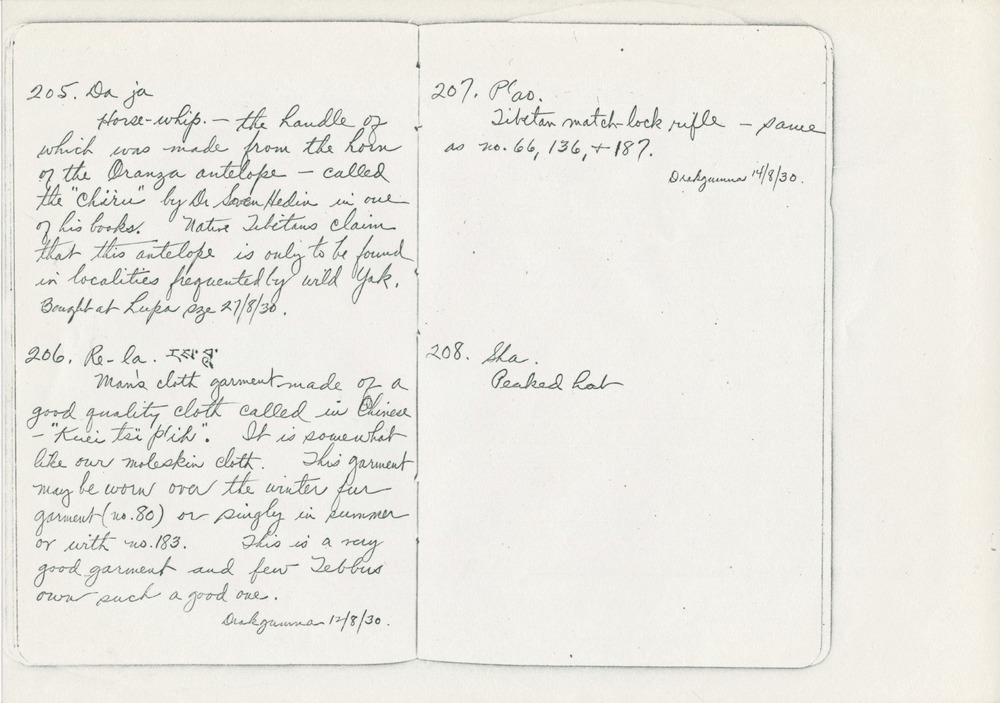 205. Da ja
Horse-whip. – the handle of
which was made from the horn
of the Oranza antelope – called
the "Chiru" by Dr Seven Hedin in one
of his books. Native Tibetans claim
that this antelope is only to be found
in localities frequented by wild Yak.
Bought at Lupa sze 27/8/30.
206. Re-la.
Man's cloth garment made of a
good quality cloth called in Chinese
– "Kuei tsi p'ih". It is somewhat
like our moleskin cloth. This garment
may be worn over the winter fur
garment (no. 80) or singly in summer
or with no. 183. This is a very
good garment and few Tebbus
own such a good one.
Drakgumna 12/8/30.
207. P'ao.
Tibetan match-lock rifle – same
as no. 66, 136, + 187.
Drakgumna 14/8/30.
208. Sha.
Peaked hat